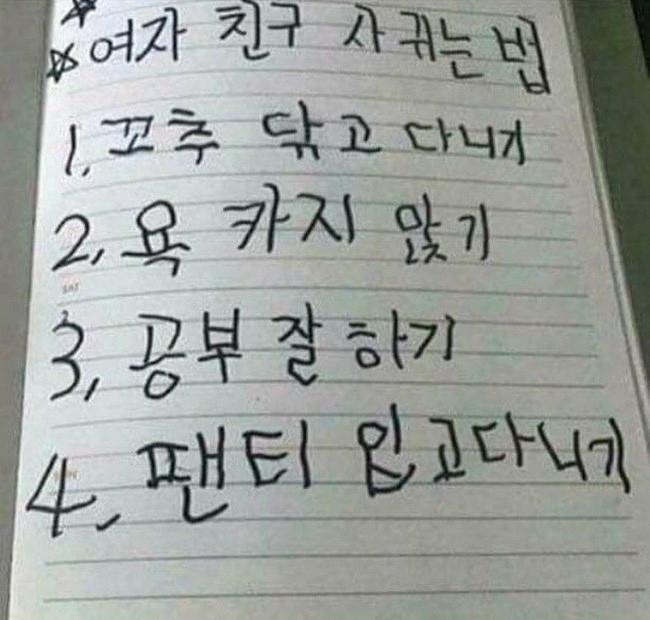 ☆
☆여자 친구 사귀는 법
1. 꼬추 닦고 다니기
2, 욕 카지 않기
3, 공부 잘 하기
4, 팬티 입고다니기